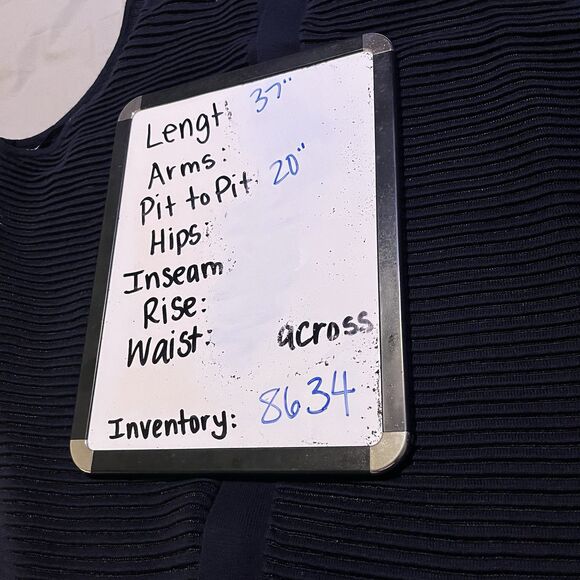 Lengt 37"
Arms:
Pit to Pit 20"
Hips:
Inseam
Rise:
Waist: across
Inventory: 8634